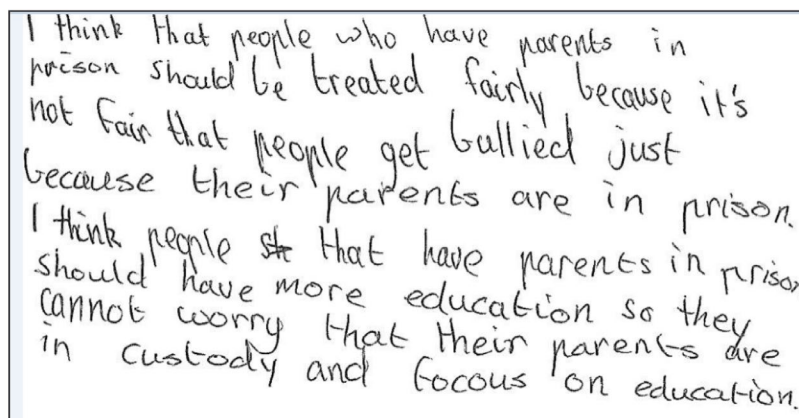 I think that people who have parents in
prison should be treated fairly because it's
not fair that people get bullied just
because their parents are in prison.
I think people that have parents in prison
should have more education so they
cannot worry that their parents are
in custody and focous on education.